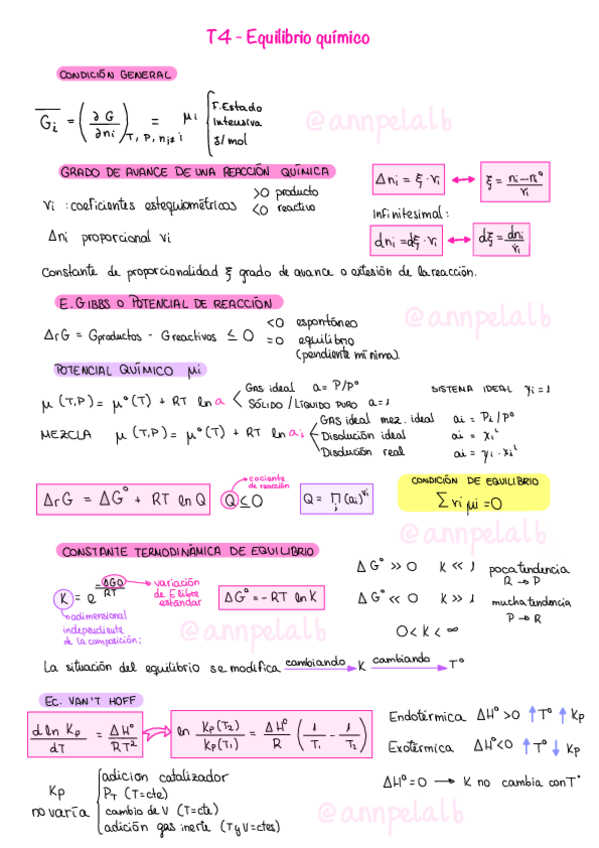 T4 - Equilibrio químico
CONDICIÓN GENERAL
G̅i = (∂G/∂ni)T, P, nj≠i = μi { F. Estado
Intensiva
J/mol
@annpelalb
GRADO DE AVANCE DE UNA REACCIÓN QUÍMICA
νi : coeficientes estequiométricos >0 producto
<0 reactivo
Δni proporcional νi
Δni = ξ · νi ↔ ξ = ni - n° / νi
Infinitesimal:
dni = dξ · νi ↔ dξ = dni / νi
Constante de proporcionalidad ξ grado de avance o extesión de la reacción.
E. GIBBS O POTENCIAL DE REACCIÓN
@annpelalb
ΔrG = Gproductos - Greactivos ≤ 0 <0 espontáneo
=0 equilibrio
(pendiente mínima).
POTENCIAL QUÍMICO μi
μ (T,P) = μ°(T) + RT ln a < Gas ideal a = P/P°
SÓLIDO / LÍQUIDO PURO a=1
SISTEMA IDEAL γi=1
MEZCLA μ (T,P) = μ°(T) + RT ln ai GAS ideal mez. ideal ai = Pi/P°
Disolución ideal ai = xi^L
Disolución real ai = γi · xi^L
ΔrG = ΔG° + RT ln Q
cociente de reacción
Q ≤ 0
Q = ∏i (ai)^νi
CONDICIÓN DE EQUILIBRIO
Σ νi μi = 0
@annpelalb
CONSTANTE TERMODINÁMICA DE EQUILIBRIO
K = e^(-ΔG0/RT) → variación
de E libre
estándar
→ adimensional
independiente
de la composición;
ΔG° = - RT ln K
@annpelalb
ΔG° >> 0 K << 1 poca tendencia
R → P
ΔG° << 0 K >> 1 mucha tendencia
P → R
0 < K < ∞
La situación del equilibrio se modifica cambiando → K cambiando → T°
EC. VAN'T HOFF
d ln Kp / dT = ΔH° / RT²
ln Kp(T2) / Kp(T1) = ΔH° / R (1/T1 - 1/T2)
Endotérmica ΔH° >0 ↑T° ↑ Kp
Exotérmica ΔH° <0 ↑T° ↓ Kp
ΔH° = 0 → K no cambia con T°
Kp
no varía { adicion catalizador
PT (T=cte)
cambio de V (T=cte)
adición gas inerte (T y V=ctes)
@annpelalb